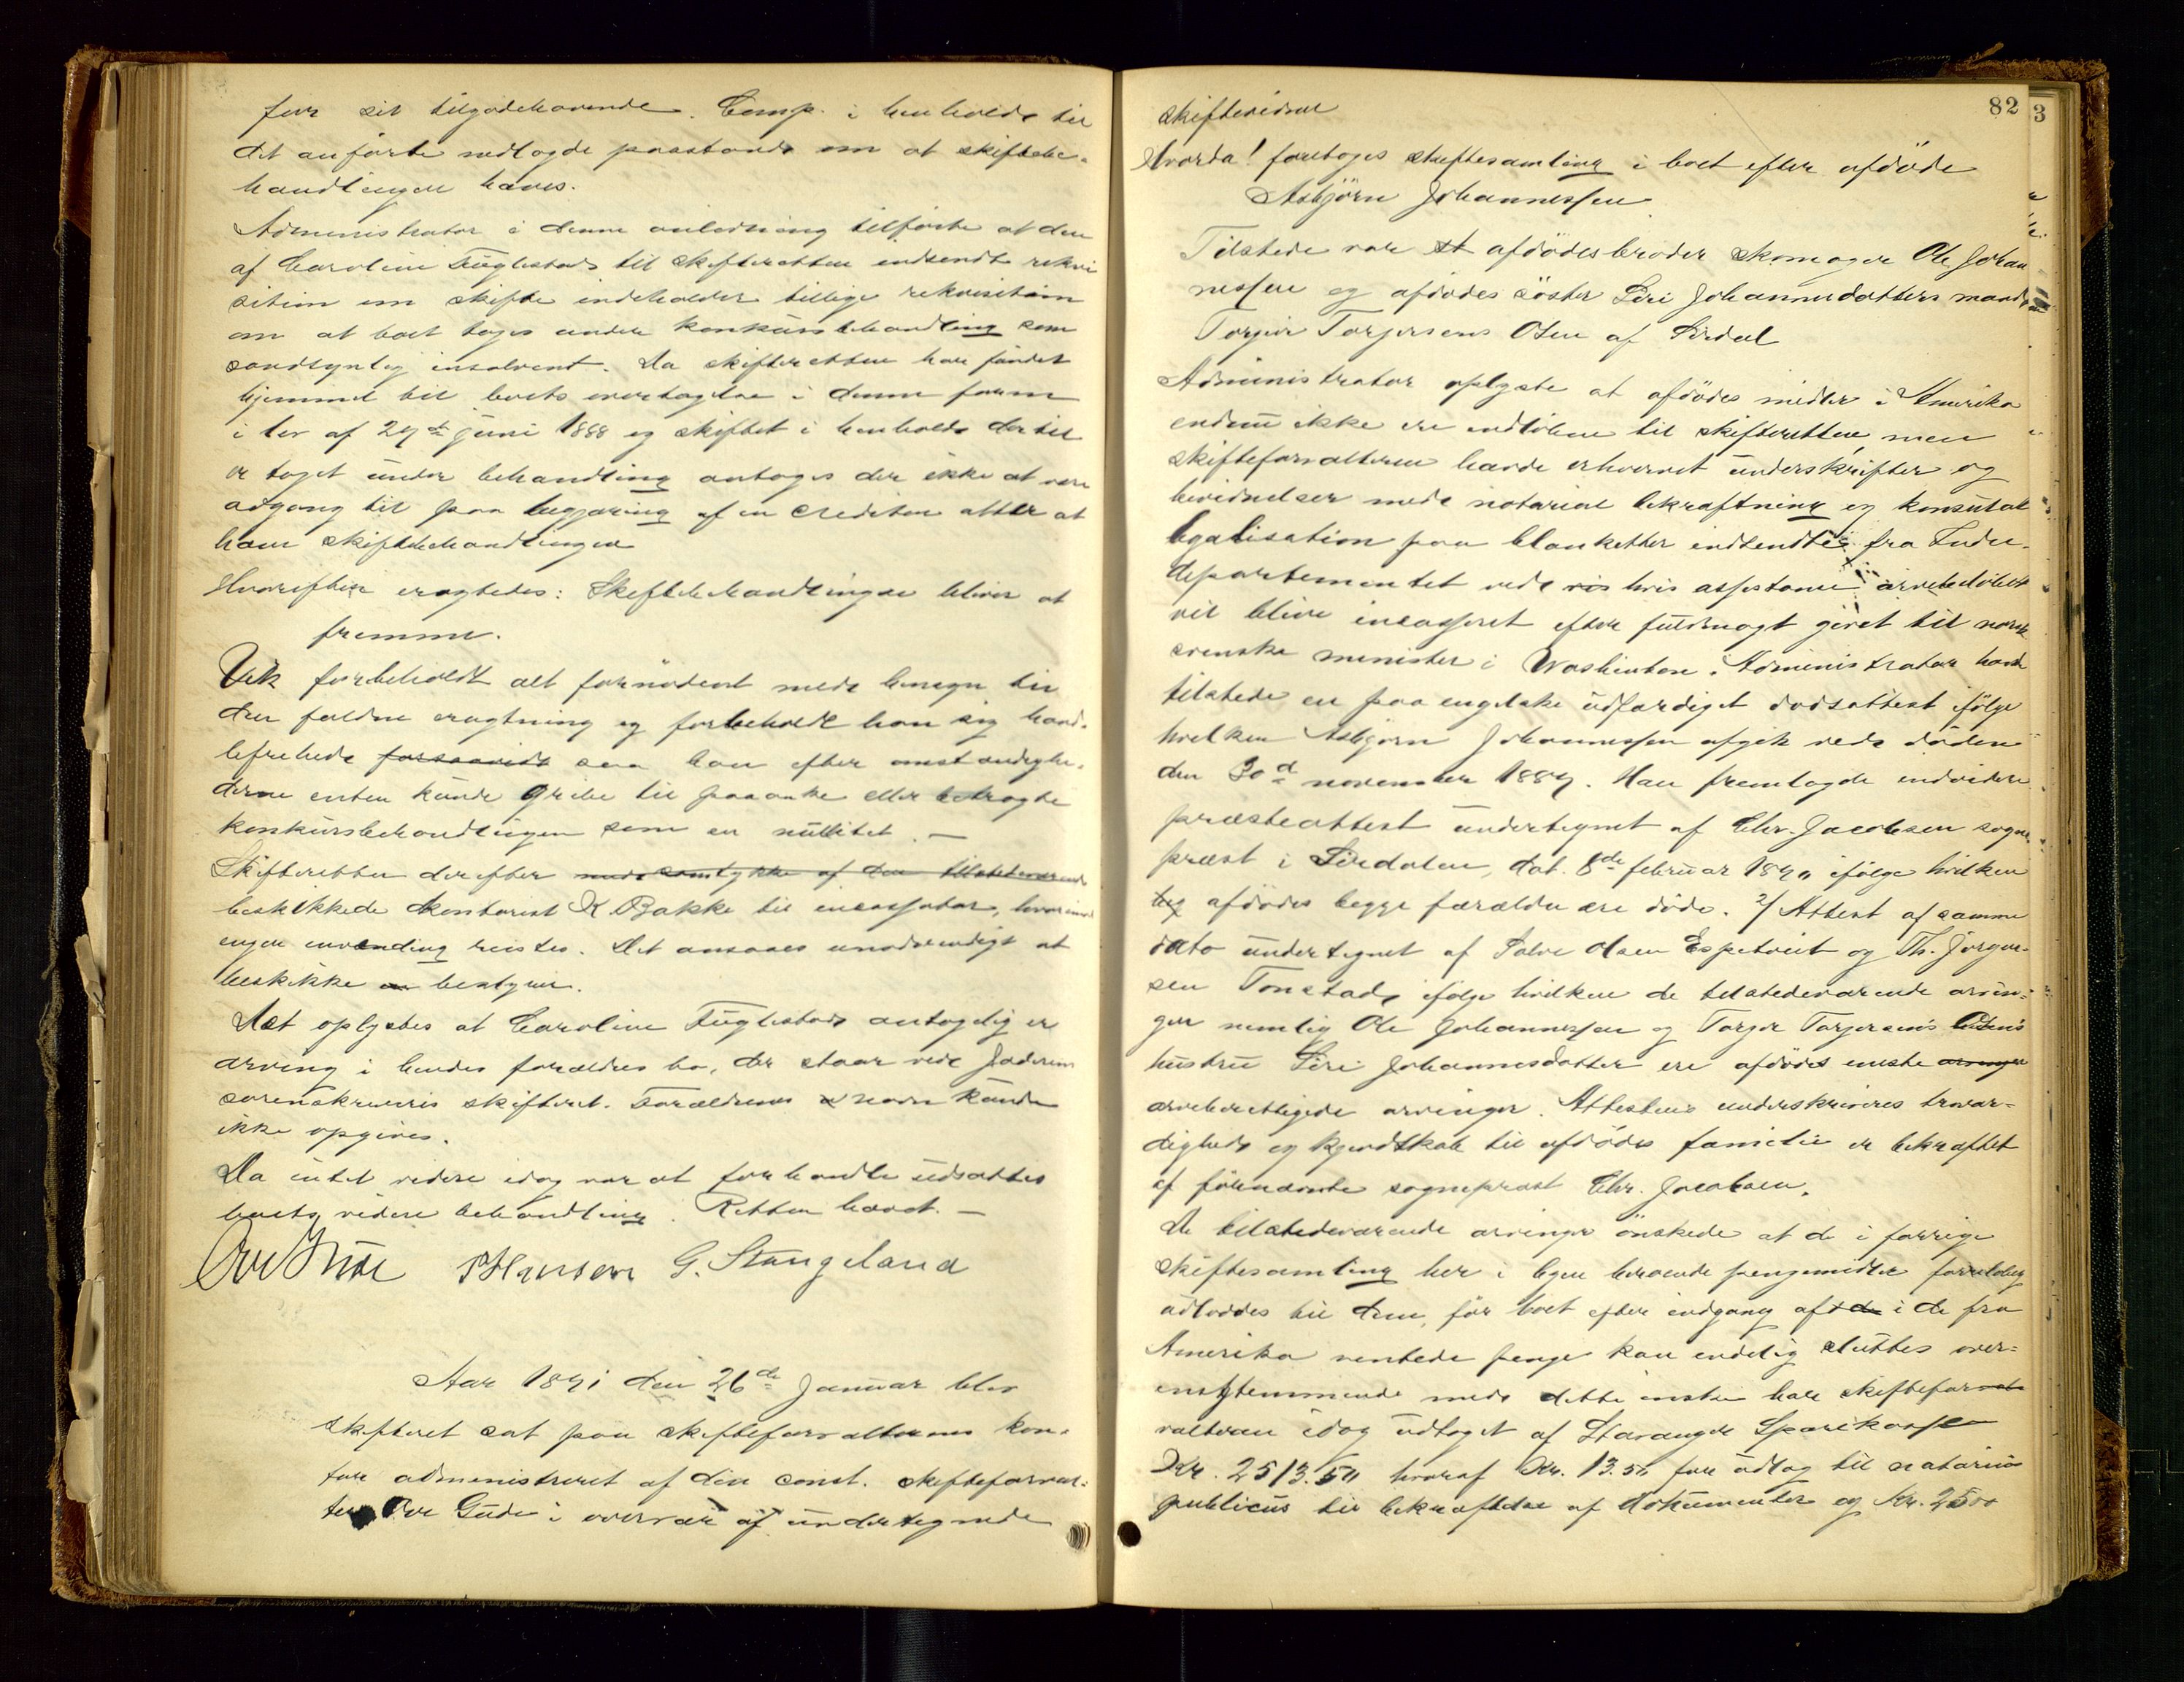 for sit tilgodehavende. Comp. i henhold til
det anførte nedlagde paastand om at skiftebe-
handlingen hæves.
Administrator i denne anledning tilførte at den
af Caroline Fuglestad til skifteretten indsendt rekvi
sition om skifte indeholder tillige rekvisition
om at boet toges under konkursbehandling som
sandsynlig insolvent. Da skifteretten har fundet
hjemmel til boets overtagelse i denne form
i lov af 29de juni 1888 og skiftet i henhold dertil
er toget under behandling antages der ikke at være
adgang til paa begjæring af en creditor atter at
hæve skiftebehandlingen
Hvorefter eragtedes: Skiftebehandlingen bliver at
fremme.
forbeholdt alt fornødent med hensyn til
den faldne eragtning og forbeholdt han sig haand-
befrihede forsaavidt saa han efter omstændighe-
derne enten kunde gribe til paaanke eller betragte
konkursbehandlingen som en nullitet. —
Skifteretten derefter med samtykke af den tilstedeværende
beskikkede kontorist K Bakke til incassator, hvorimod
ingen invending reistes. Det ansaaes unødvendigt at
beskikke en bestyrer.
Det oplystes at Caroline Fuglestad antagelig er
arving i hendes forældres bo, der staar ved Jæderens
sorenskriveris skifteret. Forældrenes navn kunde
ikke opgives.
Da intet videre idag var at forhandle udsattes
boets videre behandling. Retten hævet. —
PHansen G. Stangeland
Aar 1891 den 26de Januar blev
skifteret sat paa skifteforvalterens kon-
tor administreret af den const. skifteforval-
ter Ove Gude i overvær af undertegnede
82 3
skiftevidner
Hvorda! foretoges skiftesamling i boet efter afdøde
Asbjørn Johannessen
Tilstede var afdødes broder skomager Ole Johan
nessen og afdødes søster Siri Johannesdatters mand
Torger Torgersens Osen af Sirdal
Administrator oplyste at afdødes midler i Amerika
endnu ikke ere indløbne til skifteretten, men
skifteforvalteren havde erhvervet underskrifter og
bevidnelser med notarial bekræftning og konsulat
legalisation paa blanketter indsendte fra Indre-
departementet ved hvis assistance arvebeløbet
vil blive incasseret efter fuldmagt givet til norsk
svenske minister i Washinton. Administrator havde
tilstede en paa engelske udfærdiget dødsattest ifølge
hvilken Asbjørn Johannessen afgik ved døden
den 30d november 1889. Han fremlagde endvidere
præsteattest undertegnet af Chr. Jacobsen sogne-
præst i Siredalen, dat. 8de februar 1890 ifølge hvilken
afdødes begge forældre ere døde. 2/ Attest af samme
dato undertegnet af Salve Olsen Espetveit og Th. Jørgen-
sen Tonstad, ifølge hvilken de tilstedeværende arvin-
ger nemlig Ole Johannessen og Torger Torgersens Osens
hustru Siri Johannesdatter ere afdødes eneste arvinger
arveberettigede arvinger. Attestens underskriveres troær-
dighed og kjendskab til afdødes familie er bekræftet
af førnævnte sogneprest Chr. Jacobsen.
De tilstedeværende arvinger ønskede at de i forrige
skiftesamling her i byen beroende pengemidler foreløbig
udloddes til dem, før boet efter indgang af de i de fra
Amerika ventede penge kan endelig sluttes over-
ensstemmende med dette ønske har skiftefor
valteren idag udtaget af Stavanger Sparekasse
Kr. 2513.50 hvoraf Kr. 13.50 for udlæg til notarius
publicus til bekræftelse af dokumenter og Kr. 2500